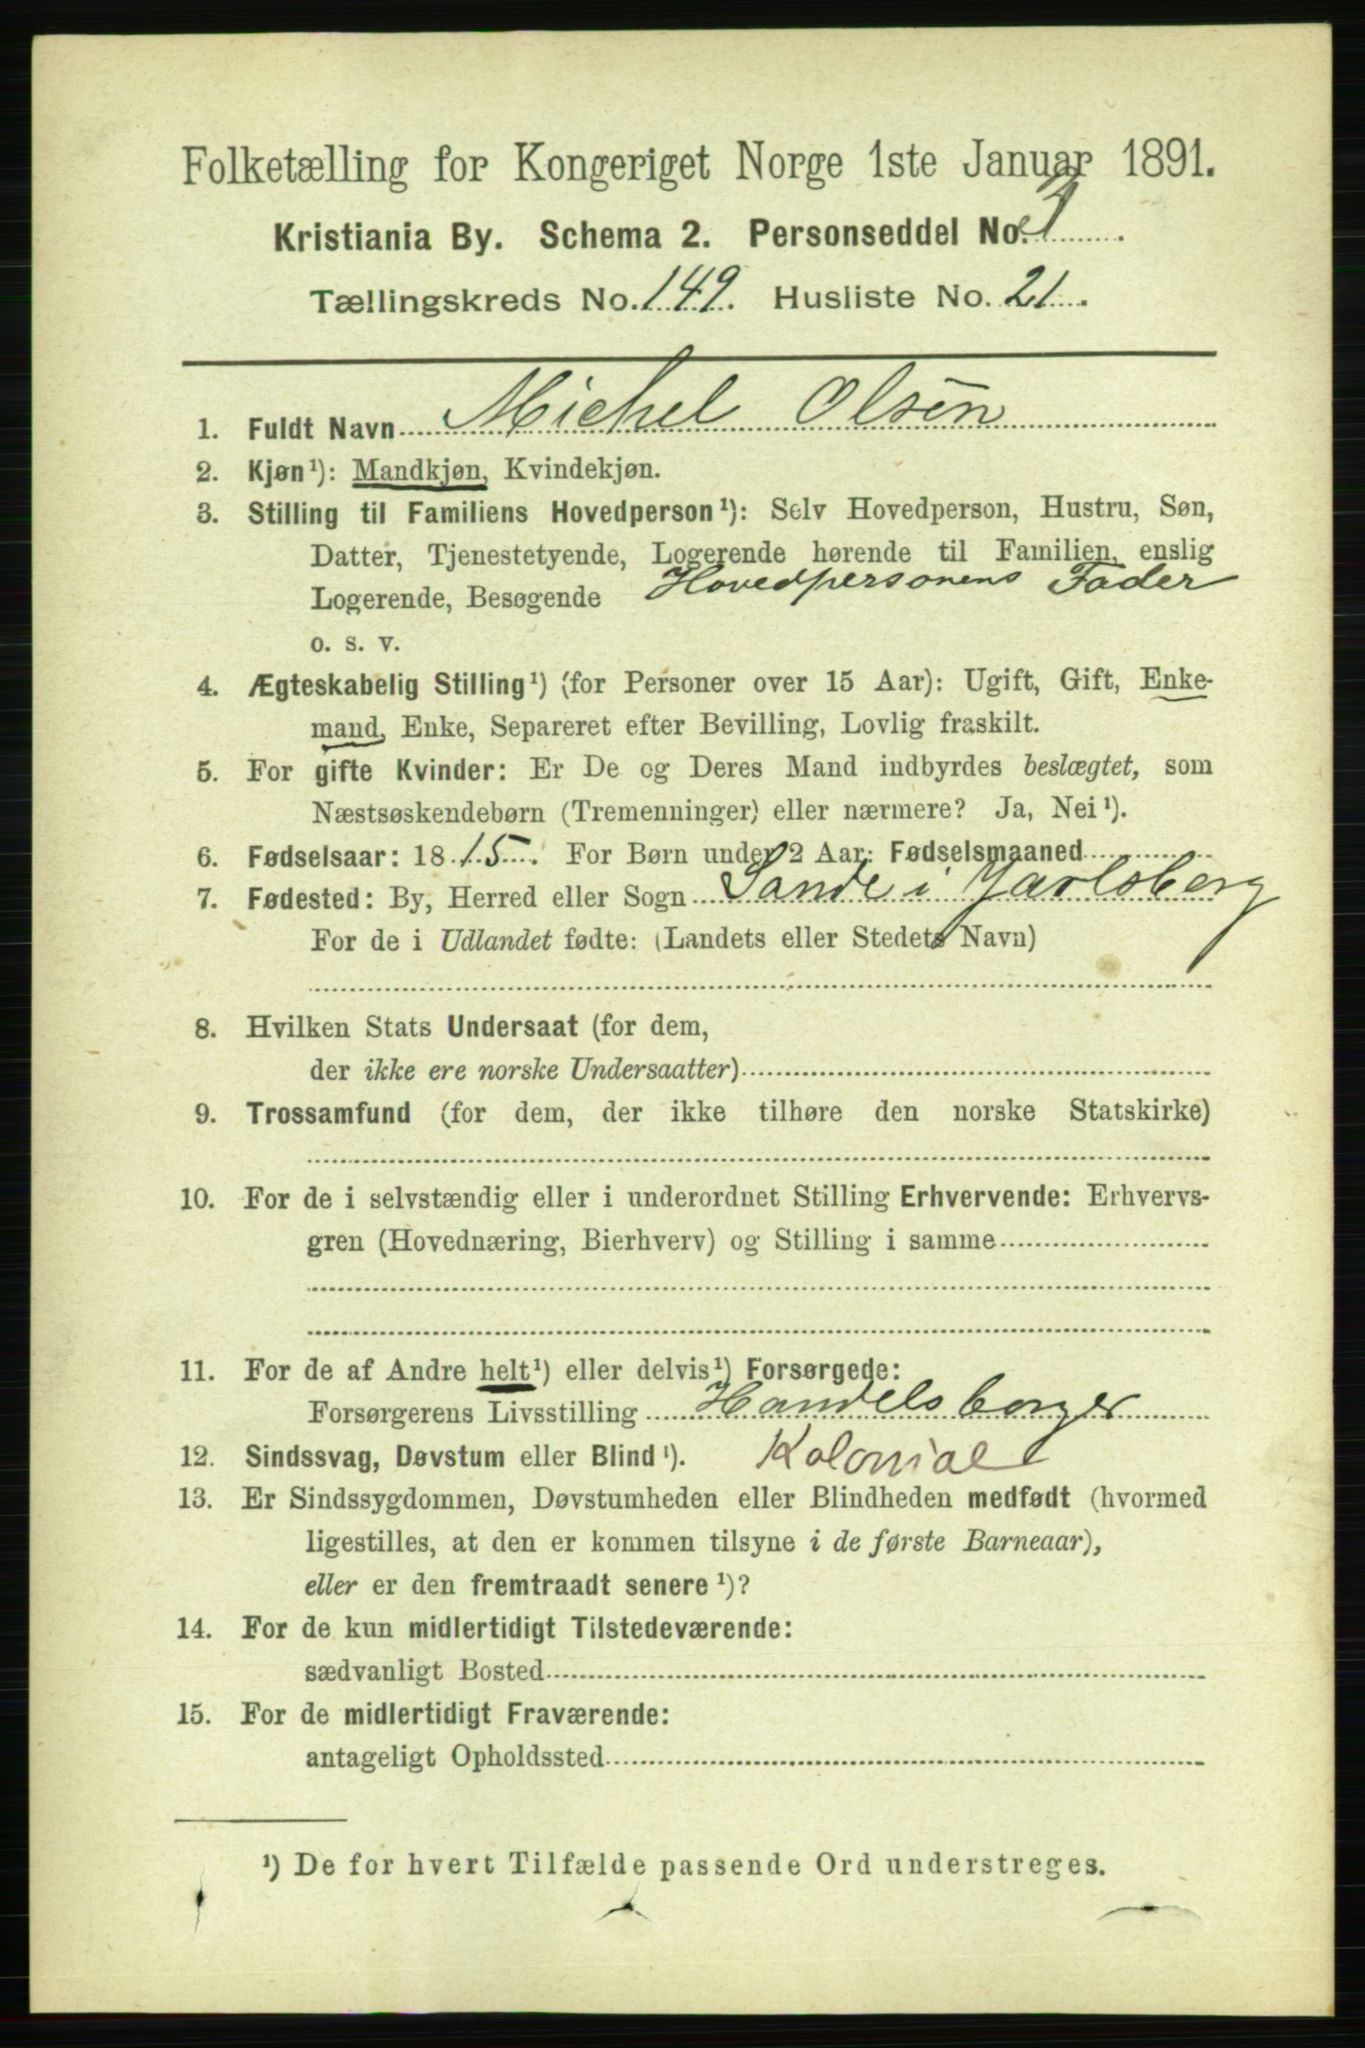 Folketælling for Kongeriget Norge 1ste Januar 1891.
Kristiania By. Schema 2. Personseddel No.
Tællingskreds No. 149. Husliste No. 21.
1. Fuldt Navn Michel Olsen
2. Kjøn¹): Mandkjøn, Kvindekjøn.
3. Stilling til Familiens Hovedperson¹): Selv Hovedperson, Hustru, Søn,
Datter, Tjenestetyende, Logerende hørende til Familien, enslig
Logerende, Besøgende Hovedpersonens Fader
o. s. v.
4. Ægteskabelig Stilling¹) (for Personer over 15 Aar): Ugift, Gift, Enke-
mand, Enke, Separeret efter Bevilling, Lovlig fraskilt.
5. For gifte Kvinder: Er De og Deres Mand indbyrdes beslægtet, som
Næstsøskendebørn (Tremenninger) eller nærmere? Ja, Nei¹).
6. Fødselsaar: 1815. For Børn under 2 Aar: Fødselsmaaned
7. Fødested: By, Herred eller Sogn Sande i Jarlsberg
For de i Udlandet fødte: (Landets eller Stedets Navn)
8. Hvilken Stats Undersaat (for dem,
der ikke ere norske Undersaatter)
9. Trossamfund (for dem, der ikke tilhøre den norske Statskirke)
10. For de i selvstændig eller i underordnet Stilling Erhvervende: Erhvervs-
gren (Hovednæring, Bierhverv) og Stilling i samme
11. For de af Andre helt¹) eller delvis¹) Forsørgede:
Forsørgerens Livsstilling Handelsborger
12. Sindssvag, Døvstum eller Blind¹). Kolonial
13. Er Sindssygdommen, Døvstumheden eller Blindheden medfødt (hvormed
ligestilles, at den er kommen tilsyne i de første Barneaar),
eller er den fremtraadt senere¹)?
14. For de kun midlertidigt Tilstedeværende:
sædvanligt Bosted
15. For de midlertidigt Fraværende:
antageligt Opholdssted
¹) De for hvert Tilfælde passende Ord understreges.